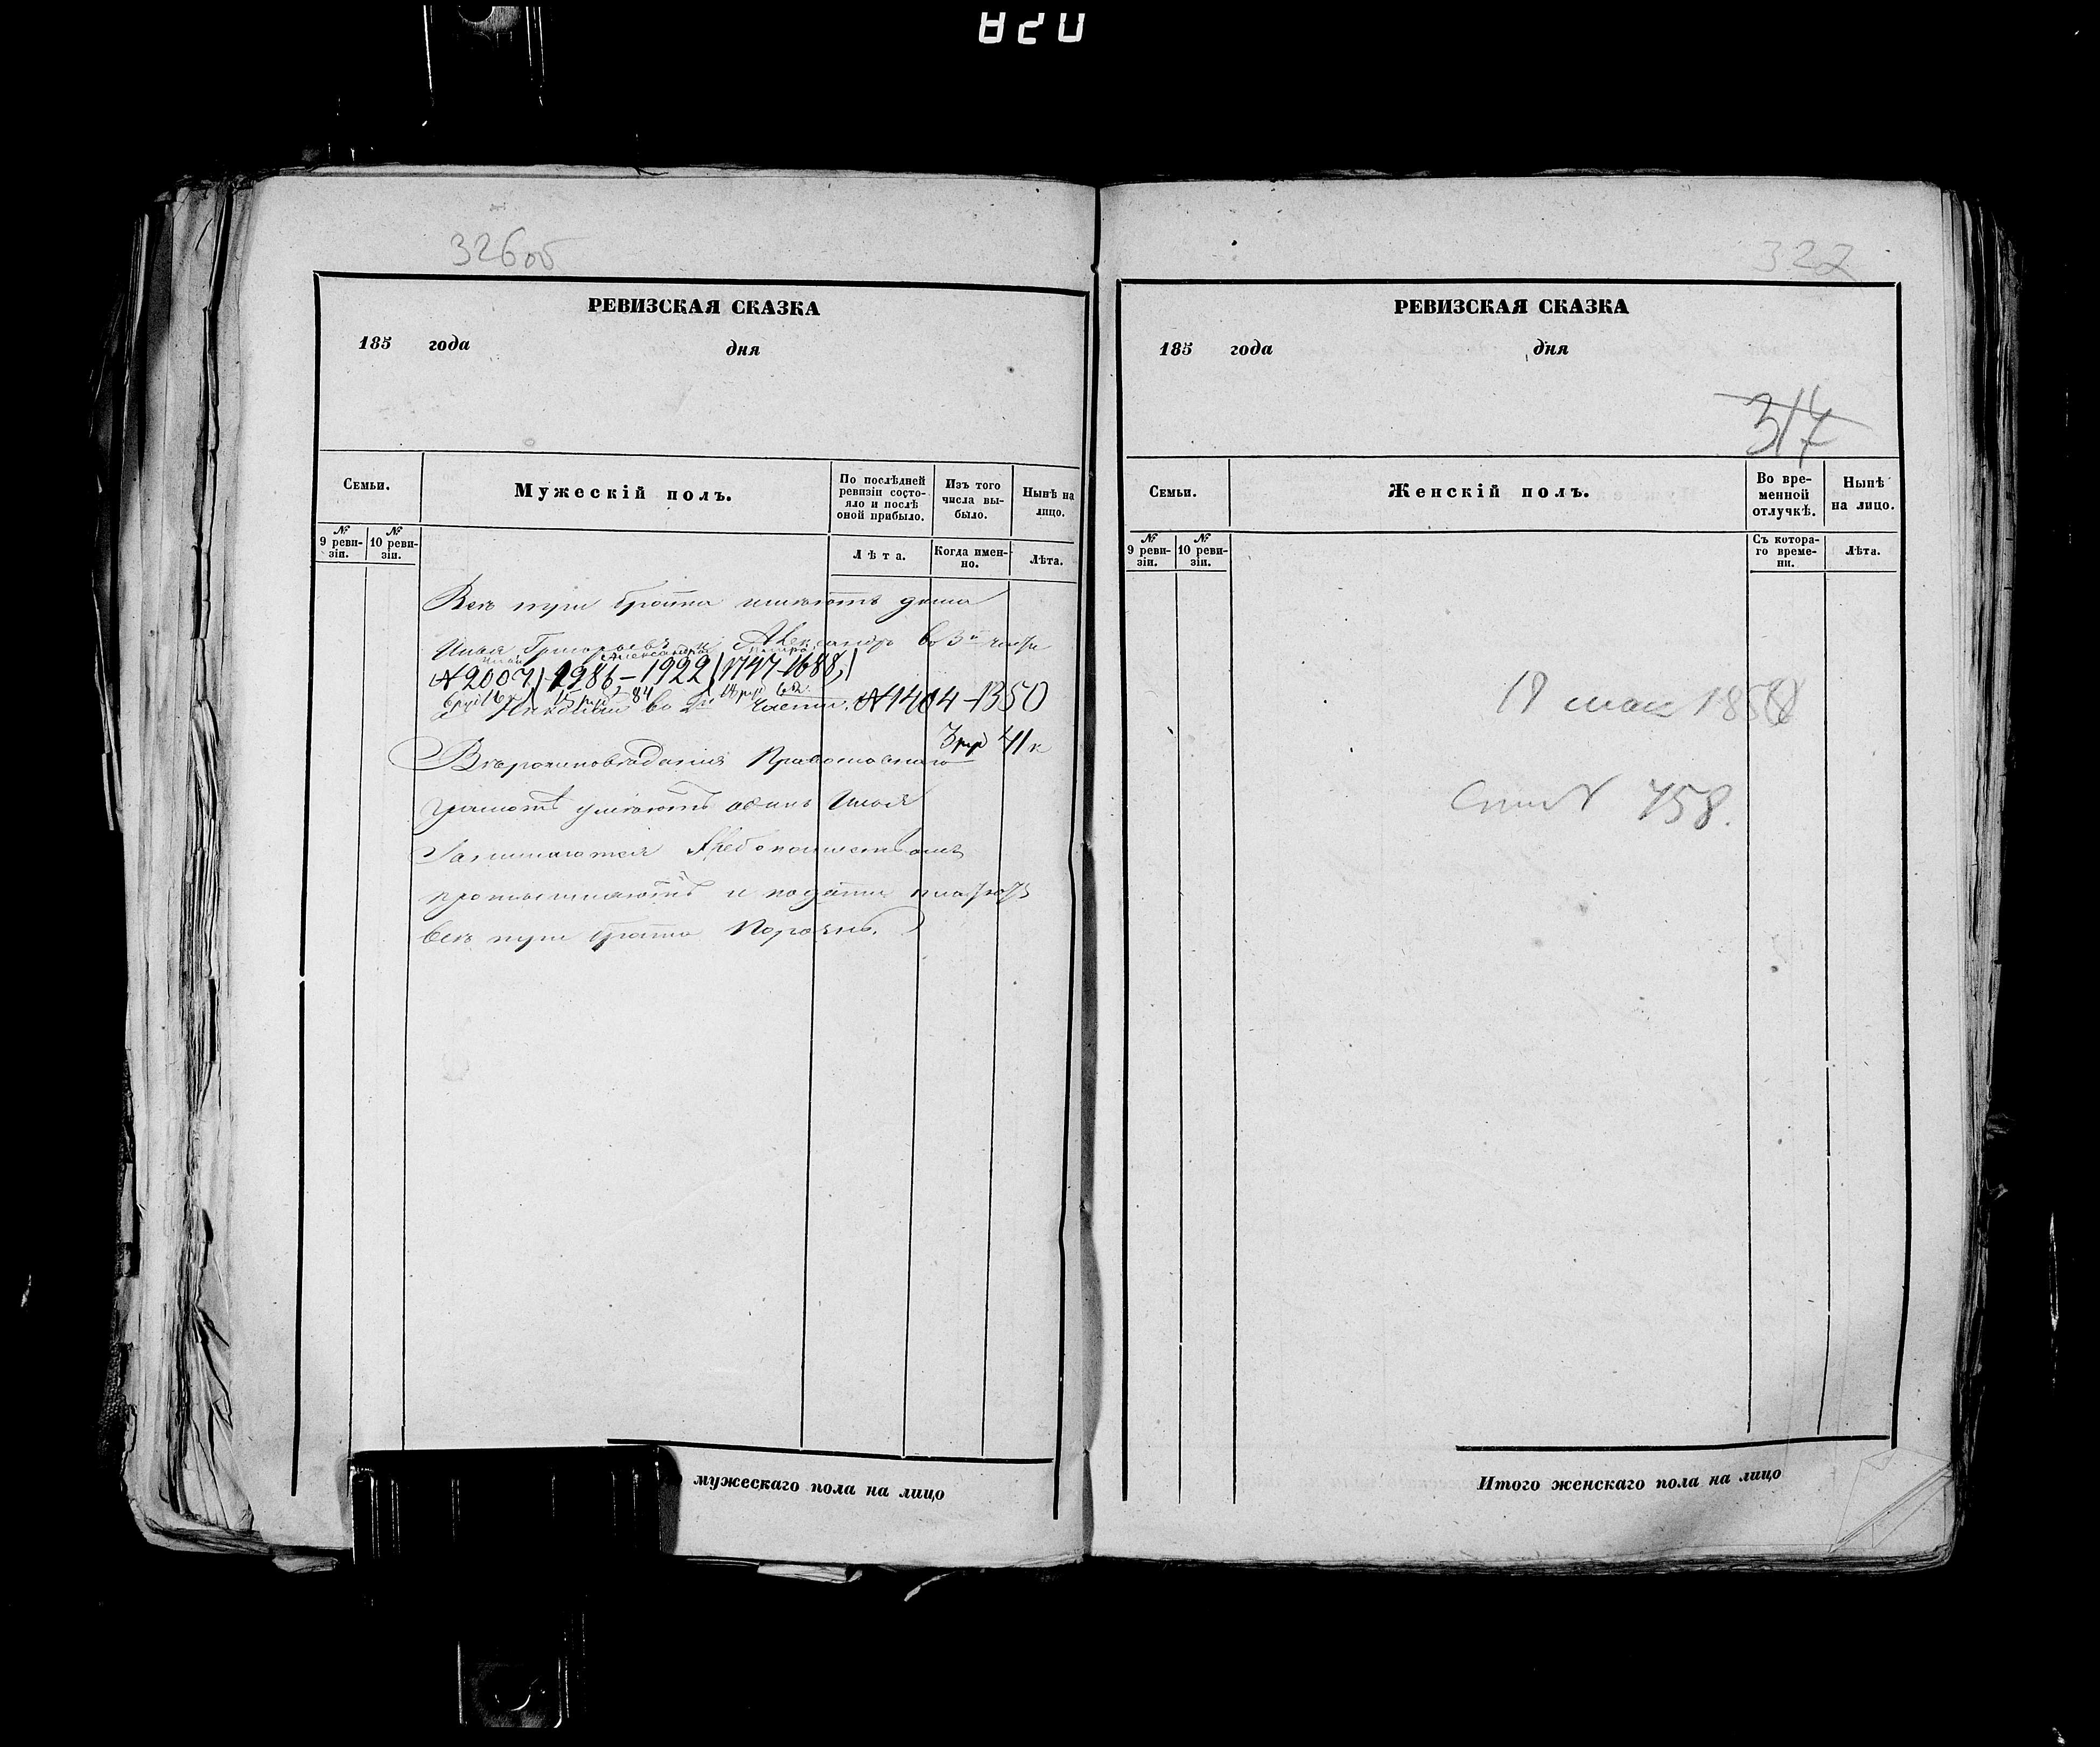 820
326об
РЕВИЗСКАЯ СКАЗКА
185 года дня
Семьи.
Мужескій полъ.
По послѣдней ревизіи состояло и послѣ оной прибыло.
Изъ того числа выбыло.
Нынѣ на лицо.
№ 9 ревизіи.
№ 10 ревизіи.
Лѣта.
Когда именно.
Лѣта.
Всѣ три брата имѣютъ дома
Илья Григорьевъ и Александръ во 3й части
Илья Александра Петра
№ 2007) 1986-1922) 1747-1688)
во 2й части. № 1404-1350
3 рур 41 к
Вѣроисповѣданія Православнаго
грамотѣ умѣютъ одинъ Илья
Занимаются Хлебопашествомъ
промышляютъ и подати платютъ
всѣ три брата Порознь.
мужескаго пола на лицо
322
РЕВИЗСКАЯ СКАЗКА
185 года дня
317
Семьи.
Женскій полъ.
Во временной отлучкѣ.
Нынѣ на лицо.
№ 9 ревизіи.
№ 10 ревизіи.
Съ котораго времени.
Лѣта.
19 мая 1858
758.
Итого женскаго пола на лицо